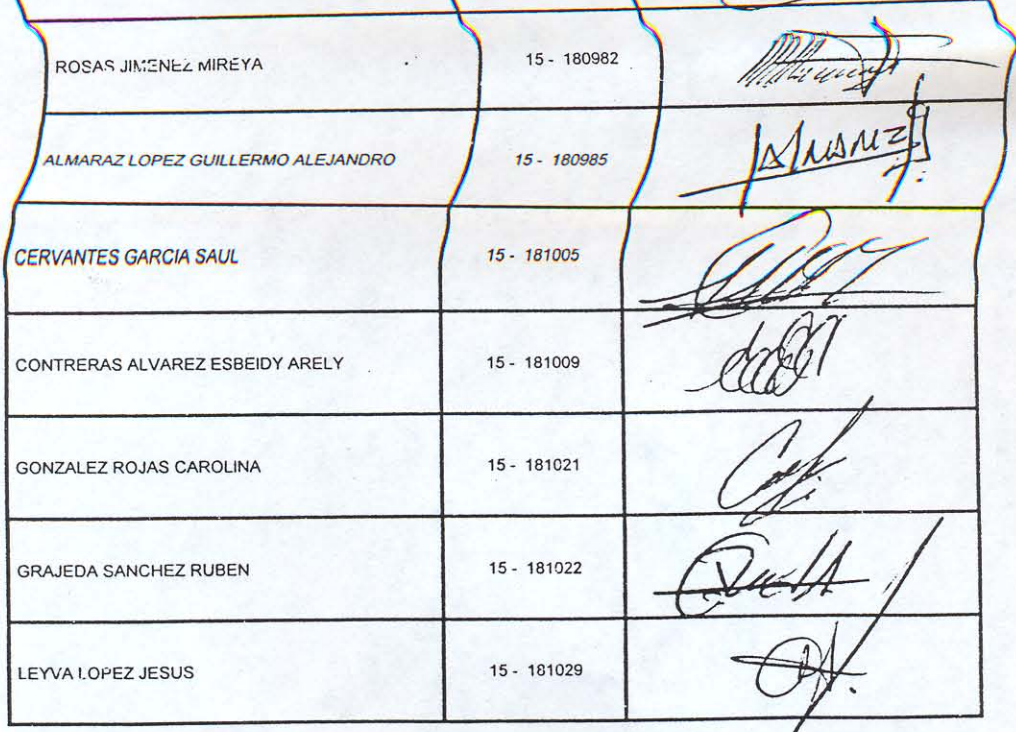 ROSAS JIMENEZ MIREYA 15 - 180982
ALMARAZ LOPEZ GUILLERMO ALEJANDRO 15 - 180985 Almaraz
CERVANTES GARCIA SAUL 15 - 181005
CONTRERAS ALVAREZ ESBEIDY ARELY 15 - 181009
GONZALEZ ROJAS CAROLINA 15 - 181021
GRAJEDA SANCHEZ RUBEN 15 - 181022
LEYVA LOPEZ JESUS 15 - 181029